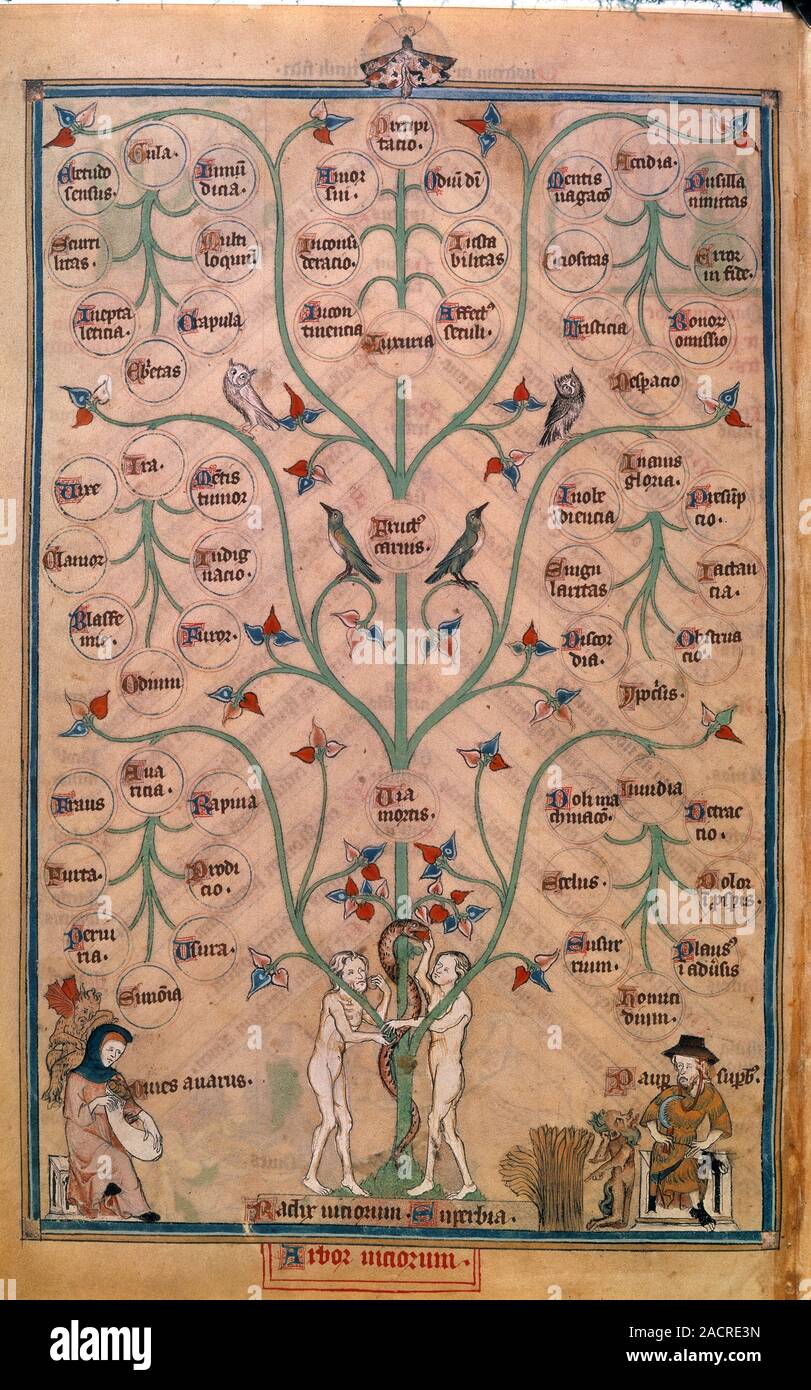 Gula.
sensus.
Inmū
dicia.
Scurri
litas.
Multi
loquiū
Inepta
leticia.
Crapula
Precipi
tacio.
Amor
sui.
Odiū dī
Inconsi
deracio.
Insta
bilitas
Incon
tinencia
Affect9
seculi.
Luxuria
Accidia.
Mentis
uagacō.
Pusilla
nimitas
Ociositas
Error
in fide.
Tristicia
Bonor
omissio
Ira.
Rixe
Mētis
tumor
Clamor
Indig
nacio.
Blasfe
mie.
Furor.
Odium
Fruct9
carnis.
Inanis
gloria.
Inobe
diencia
Presūp
cio.
Singu
laritas
Iactan
cia.
Discor
dia.
Obstina
cio
Aua
ricia.
Fraus
Rapina
Furta.
Prodi
cio.
Periu
ria.
Usura.
Via
mortis.
Inuidia
Doli ma
chinacō.
Detrac
cio.
Scelus.
Dolor
i pspis.
Susur
rium.
Plaus9
Homici
dium.
Diues auarus.
Paup supb9.
Radix uiciorum. Superbia.
Arbor uiciorum.
alamy
Image ID: 2ACRE3N
www.alamy.com